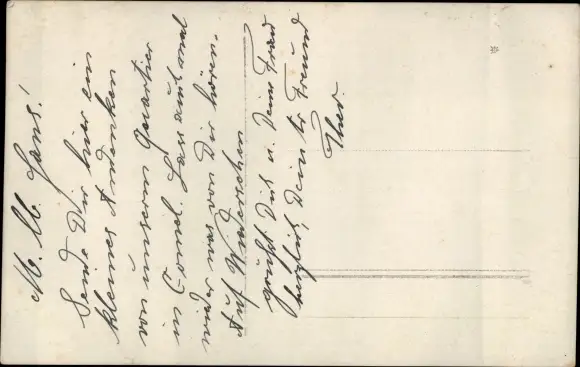 M. lb. Hans!
Sende Dir hier ein
kleines Andenken
von unserm Quartier
in Lass auch mal
wieder was von Dir hören.
Auf Wiedersehen
grüßt Dich u. Deine Frau
herzlich Dein tr. Freund
Theo.